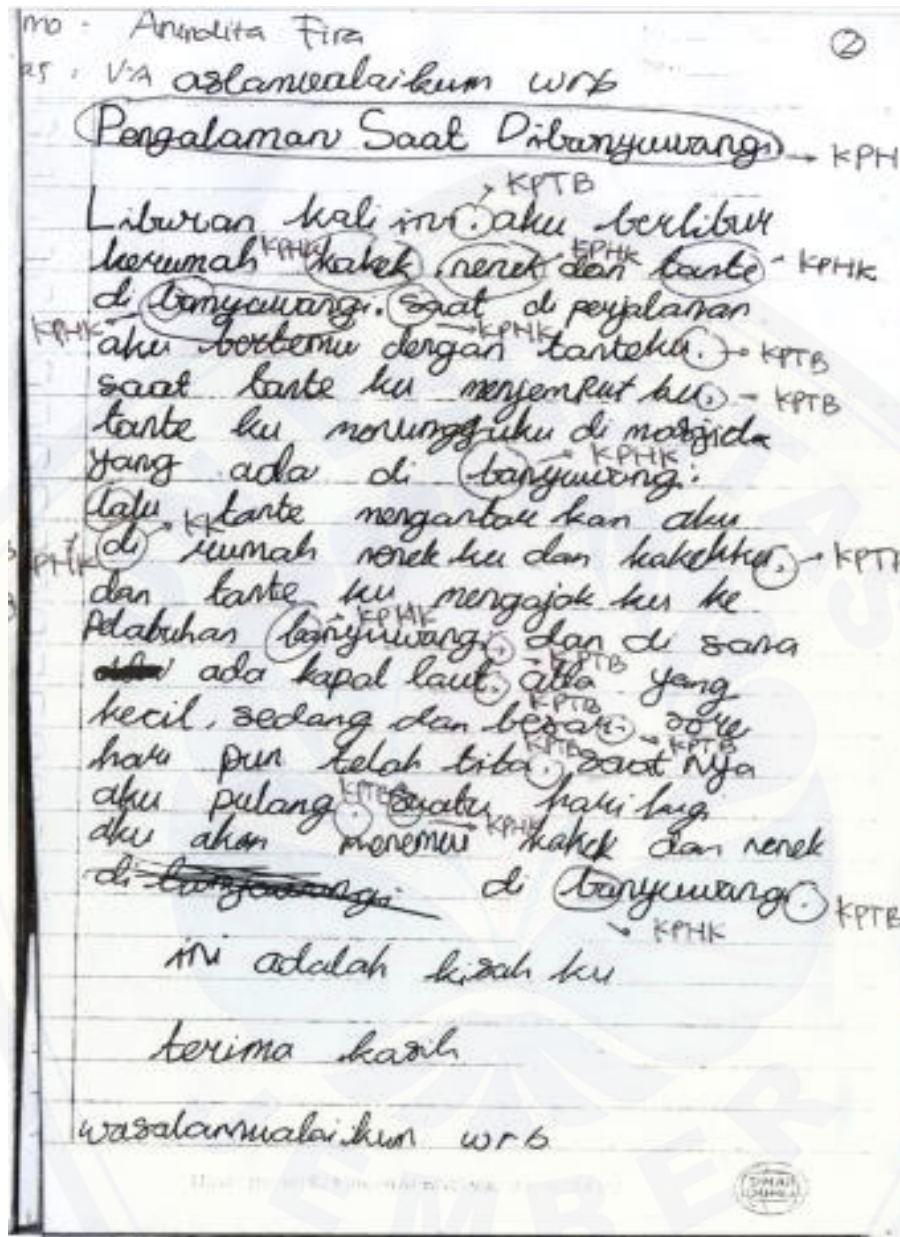 mo : Anindita Fira
②
as : V.A aslamualaikum wrb
Pengalaman Saat Dibanyuwangi → KPH
KPTB
Liburan kali ini. aku berlibur
kerumah KPHK kakek, nenek KPHK dan tante - KPHK
di banyuwangi. saat di perjalanan
KPHK aku bertemu KPHK dengan tanteku. → KPTB
saat tante ku menjemput ku. - KPTB
tante ku menungguku di masjid
yang ada di banyuwangi. KPHK
lalu tante mengantar kan aku
PHK di KK rumah nenek ku dan kakekku. → KPTB
dan tante ku mengajak ku ke
Pelabuhan banyuwangi. KPHK dan di sana
KPTB
ada kapal laut. ada yang
KPTB
kecil, sedang dan besar. sore
KPTB KPTB
hari pun telah tiba. saat nya
aku pulang. KPTB suatu KPHK hari lagi
aku akan menemui kakek dan nenek
di banyuwangi di banyuwangi. KPTB
KPHK
ini adalah kisah ku
terima kasih
wasalamualaikum wrb
EMBER